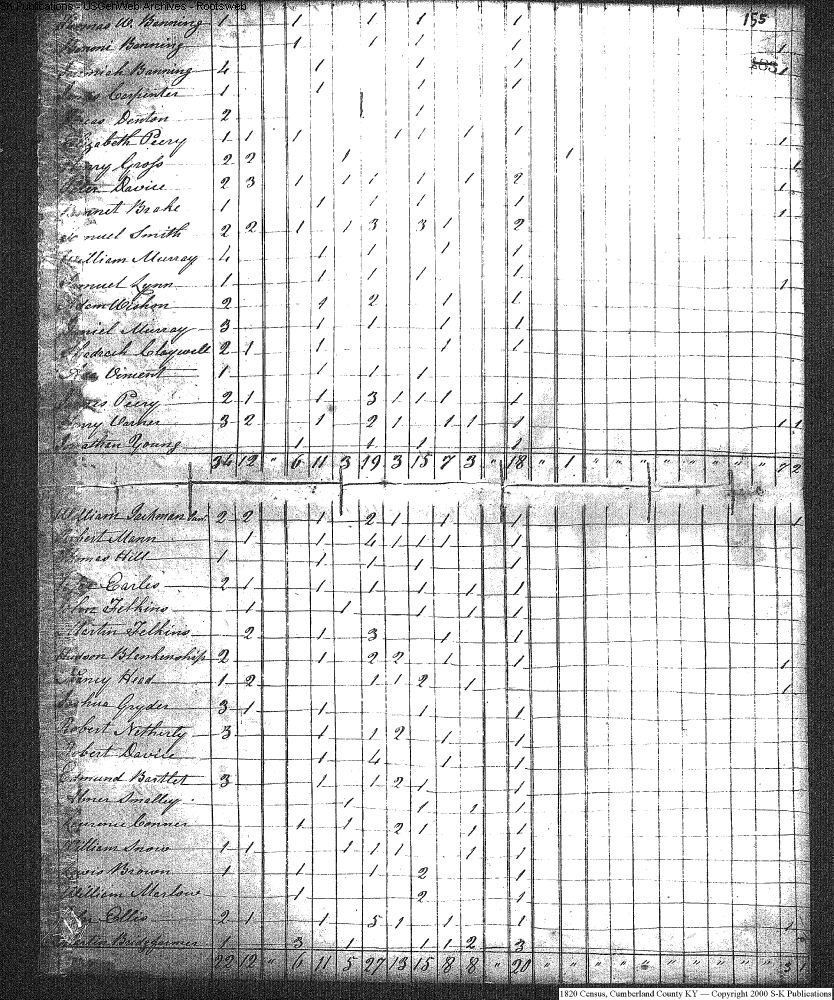 S-K Publications - USGenWeb Archives - Rootsweb
155
Thomas W. Banning 1 1 1 1 1
Banning 1 1 1 1 1
Jeremiah Banning 4 1 1 1 1
Carpenter 1 1 1 1
Denton 2 1 1
Elizabeth Peery 1 1 1 1 1 1 1 1
Henry Gross 2 2 1 1 1
Davice 2 3 1 1 1 1 1 2 1
Brake 1 1 1 1 1 1
Samuel Smith 2 2 1 1 3 3 1 2
William Murray 4 1 1 1 1
Samuel Lynn 1 1 1 1 1 1
2 1 2 1 1
Daniel Murray 3 1 1 1 1
Shadrach Claywell 2 1 1 1 1
Viment 1 1 1 1
Peery 2 1 1 3 1 1 1 1
Henry Warner 3 2 1 2 1 1 1 1 1 1
Jonathan Young 1 1 1 1
34 12 " 6 11 3 19 3 15 7 3 " 18 " 1 " " " " " " " " 7 2
William Jackman 2 2 1 2 1 1 1 1
Robert Mann 1 1 4 1 1 1 1
Thomas Hill 1 1 1 1 1
Earlis 2 1 1 1 1 1 1
Felkins 1 1 1 1 1
Martin Felkins 2 1 3 1 1
Hudson Blenkenship 2 1 2 2 1 1 1
Nancy Head 1 2 1 1 2 1 1
Joshua Gryder 3 1 1 1 1
Robert Netherly 3 1 1 2 1 1
Robert Davice 1 4 1 1
Edmund Bartlet 3 1 1 2 1 1
Abner Smalley 1 1 1 1
Conner 1 1 2 1 1 1
William Snow 1 1 1 1 1 1 1
Lewis Brown 1 1 1 2 1
William Marlowe 1 2 1
Ellis 2 1 1 5 1 1 1 1
1 3 1 1 1 2 3
22 12 " 6 11 5 27 13 15 8 8 " 20 " " " " " " " " " " 3 1
1820 Census, Cumberland County KY — Copyright 2000 S-K Publications